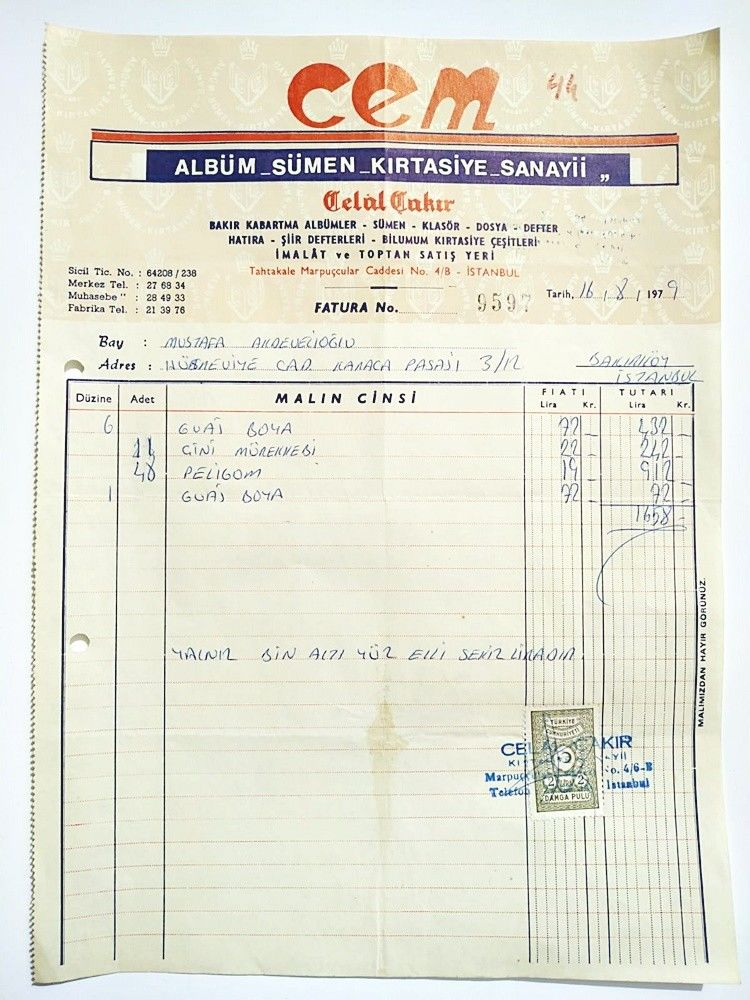 cem
44
ALBÜM_SÜMEN_KIRTASİYE_SANAYİİ „
Celâl Çakır
BAKIR KABARTMA ALBÜMLER - SÜMEN - KLASÖR - DOSYA - DEFTER
HATIRA - ŞİİR DEFTERLERİ - BİLUMUM KIRTASİYE ÇEŞİTLERİ
İMALÂT ve TOPTAN SATIŞ YERİ
Tahtakale Marpuççular Caddesi No. 4/B - İSTANBUL
Sicil Tic. No. : 64208 / 238
Merkez Tel. : 27 68 34
Muhasebe " : 28 49 33
Fabrika Tel. : 21 39 76
FATURA No. 9597
Tarih, 16 / 8 / 1979
Bay : MUSTAFA
Adres : CAD KARACA PASAJI 3/12 BAKIRKÖY
İSTANBUL
Düzine Adet MALIN CİNSİ FİATI Lira Kr. TUTARI Lira Kr.
6 GUAJ BOYA 72 - 432 -
11 ÇİNİ MÜREKKEBİ 22 - 242 -
48 PELİGOM 19 - 912 -
1 GUAJ BOYA 72 - 72 -
1658 -
YALNIZ BİN ALTI YÜZ ELLİ SEKİZ LİRADIR.
MALIMIZDAN HAYIR GÖRÜNÜZ.
TÜRKİYE
CUMHURİYETİ
2 LİRA 2
DAMGA PULU
CELÂL ÇAKIR
No. 4/6-B
Telefon İstanbul